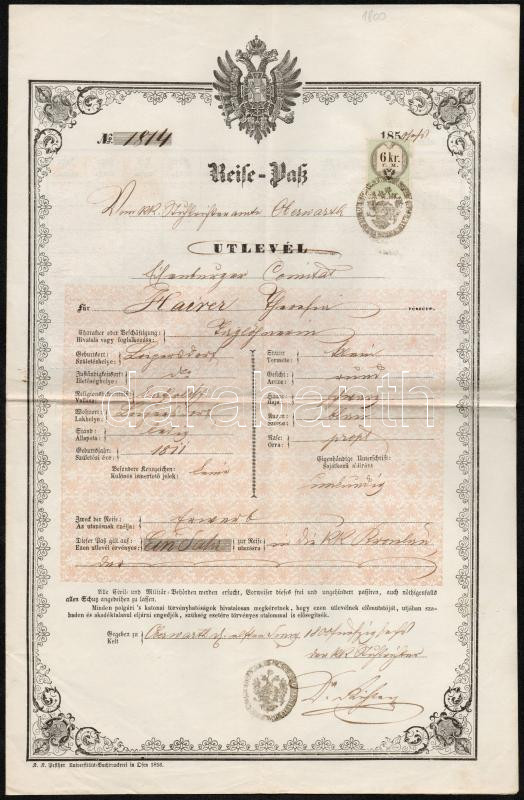 1800
No. 1814
185
6 kr.
C. M.
Reise-Paß
Oberwarth
UTLEVÉL
Eisenburger Comitat
Für Hairer Theresia
részére.
Charakter oder Beschäftigung:
Hivatala vagy foglalkozása: Taglöhnerin
Geburtsort:
Születéshelye: Loipersdorf
Zuständigkeitsort:
Illetőséghelye: dto
Religionsbekenntniß:
Vallása: Katholisch
Wohnort:
Lakhelye: Loipersdorf
Stand:
Állapota: ledig
Geburtsjahr:
Születési éve:
Besondere Kennzeichen:
Különös ismertető jelek: keine
Statur:
Termete: klein
Gesicht:
Arcza: rund
Haare:
Haja:
Augen:
Szeme:
Nase:
Orra: prop.
Eigenhändige Unterschrift:
Sajátkezű aláírása:
unkundig
Zweck der Reise:
Az utazásnak czélja: Erwerb
Dieser Paß gilt auf:
Ezen utlevél érvényes: Ein Jahr zur Reise
utazásra in die k.k. Kronlän
der
Alle Civil- und Militär-Behörden werden ersucht, Vorweiser dieses frei und ungehindert passiren, auch nöthigenfalls
allen Schutz angedeihen zu lassen.
Minden polgári 's katonai törvényhatóságok hivatalosan megkéretnek, hogy ezen utlevélnek előmutatóját, utjában sza-
badon és akadéktalanul eljárni engedjék, szükség esetére törvényes oltalommal is elősegítsék.
Gegeben zu
Kelt Oberwarth
Dr.
K. K. Pesther Universitäts-Buchdruckerei in Ofen 1856.
darabanth